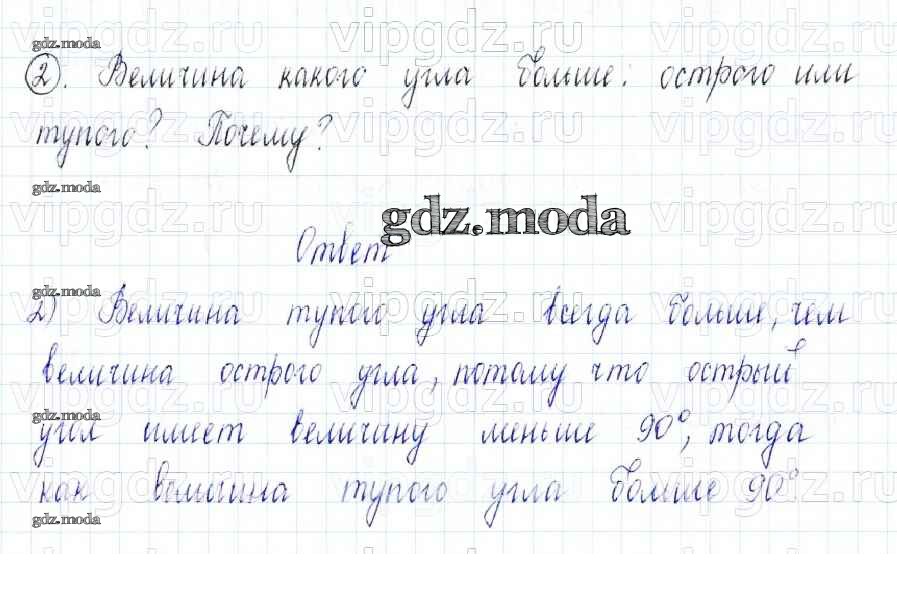 vipgdz.ru vipgdz.ru vipgdz.ru
gdz.moda
2. Величина какого угла больше: острого или
vipgdz.ru vipgdz.ru vipgdz.ru
тупого? Почему?
gdz.moda
vipgdz.ru vipgdz.ru vipgdz.ru
gdz.moda
Ответ
gdz.moda
vipgdz.ru vipgdz.ru vipgdz.ru
2) Величина тупого угла всегда больше, чем
величина острого угла, потому что острый
vipgdz.ru vipgdz.ru vipgdz.ru
gdz.moda
угол имеет величину меньше 90°, тогда
как величина тупого угла больше 90°
vipgdz.ru vipgdz.ru vipgdz.ru
gdz.moda